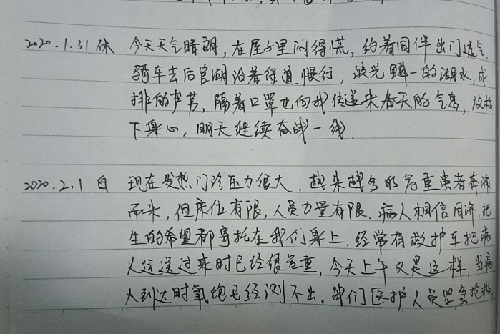 2020.1.31 休 今天天气晴朗,在屋子里闷得慌,约着同伴出门透气,
骑车去后官湖沿着绿道慢行,波光粼一的湖水,成
排的芦苇,隔着口罩也向我传递来春天的气息,放松
下身心,明天继续奋战一线.
2020.2.1 白 现在发热门诊压力很大,越来越多的危重患者奔涌
而来,但床位有限,人员力量有限,病人相信同济,把
生的希望都寄托在我们身上,经常有救护车把病
人运送过来时已经很危重,今天上午又是这样,当病
人到达时氧饱已经测不出,我们医护人员紧急抢救